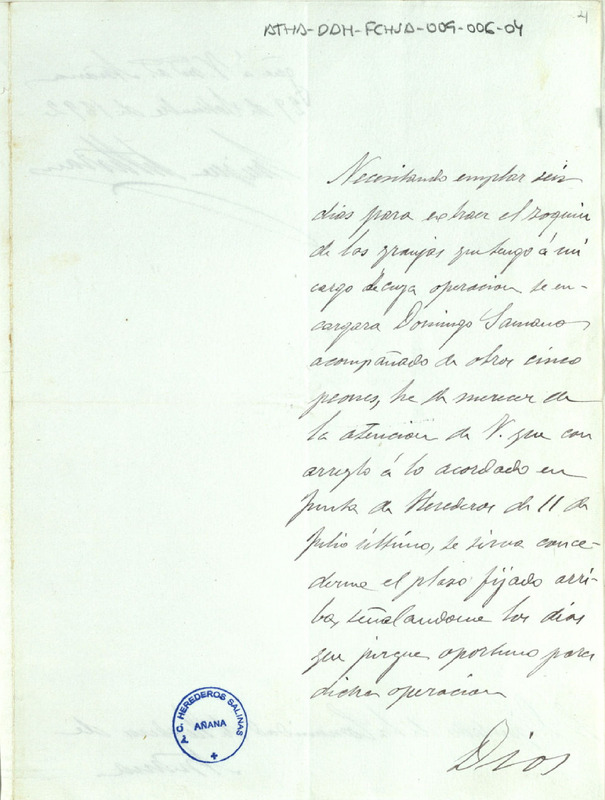 ATHA-DAH-FCHSA-009-006-04
4
Necesitando emplear seis
dias para extraer el zoquin
de las granjas que tengo á mi
cargo de cuya operacion se en-
cargara Domingo Samano
acompañado de otros cinco
peones, he de merecer de
la atencion de V. que con
arreglo á lo acordado en
Junta de Herederos de 11 de
Julio último, se sirva conce-
derme el plazo fijado arri-
ba, señalandome los dias
que juzgue oportuno para
dicha operacion
Dios
C. HEREDEROS SALINAS
AÑANA